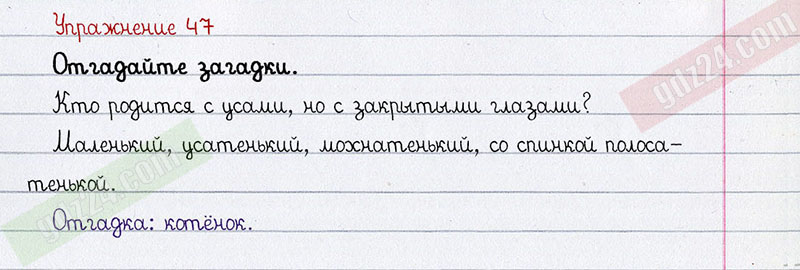 Упражнение 47
Отгадайте загадки.
Кто родится с усами, но с закрытыми глазами?
Маленький, усатенький, мохнатенький, со спинкой полоса-
тенькой.
Отгадка: котёнок.
gdz24.com
gdz24.com